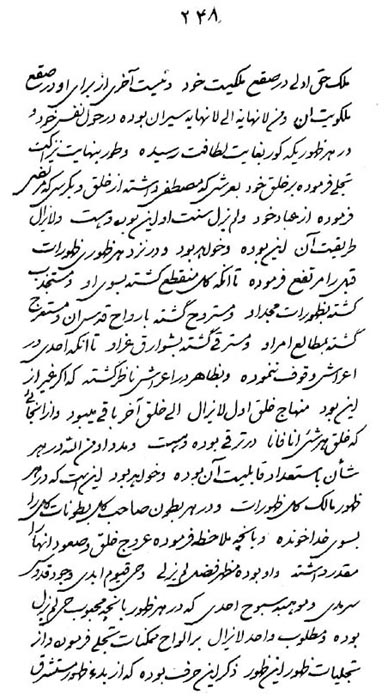 ۲۴۸
ملک حق اولی در صقع ملکیت خود و نیست آخری از برای او در صقع
ملکوتیت او و من لا نهایة الی لا نهایة سیران بوده در حول نفس خود و
در هر ظور یکه کور بغایت لطافت رسیده و طور بنهایت نزاکت
تجلی فرموده بر خلق خود بعرشی که مصطفی داشته از خلق و بکرسی که مرتضی
فرموده از عباد خود و لم یزل سنت او این بوده و هست و لا یزال
طریقت آن این بوده و خواهد بود و در نزد هر ظهوری ظهورات
قبل را مرتفع فرموده تا آنکه کل منقطع گشته بسوی او و منجذب
گشته بظهورات مجداد و متروح گشته بارواح قدسان و متعرج
گشته بمطالع امراد و مترقی گشته بشوارق عزاد تا آنکه احدی در
اعراش وقوف ننموده و بظاهر در اعراش ناظر گشته که اگر غیر از
این بود منهاج خلق اول لا یزال الی خلق آخر باقی میبود و از آنجائی
که خلق هر شئی آنا فانا در ترقی بوده و هست و مدد از من الله در هر
شأن باستعداد قابلیت آن بوده و خواهد بود این است که در هر
ظهور مالک کل ظهورات و در هر بطون صاحب کل بطونات کل را
بسوی خدا خوانده و بآنچه ملاحظه فرموده عروج خلق و صعود آنها را
مقدر داشته و او بوده مظهر فضل لم یزلی و حی قیوم ابدی وجود قدوس
سرمدی و موهبت سبوح احدی که در هر ظهور بآنچه محبوب حق لم یزل
بوده و مطلوب واحد لا یزال بر الواح ممکنات تجلی فرموده و از
تجلیات ظهور این ظهور ذکر این حرف بوده که از بدء ظهور مستشرق